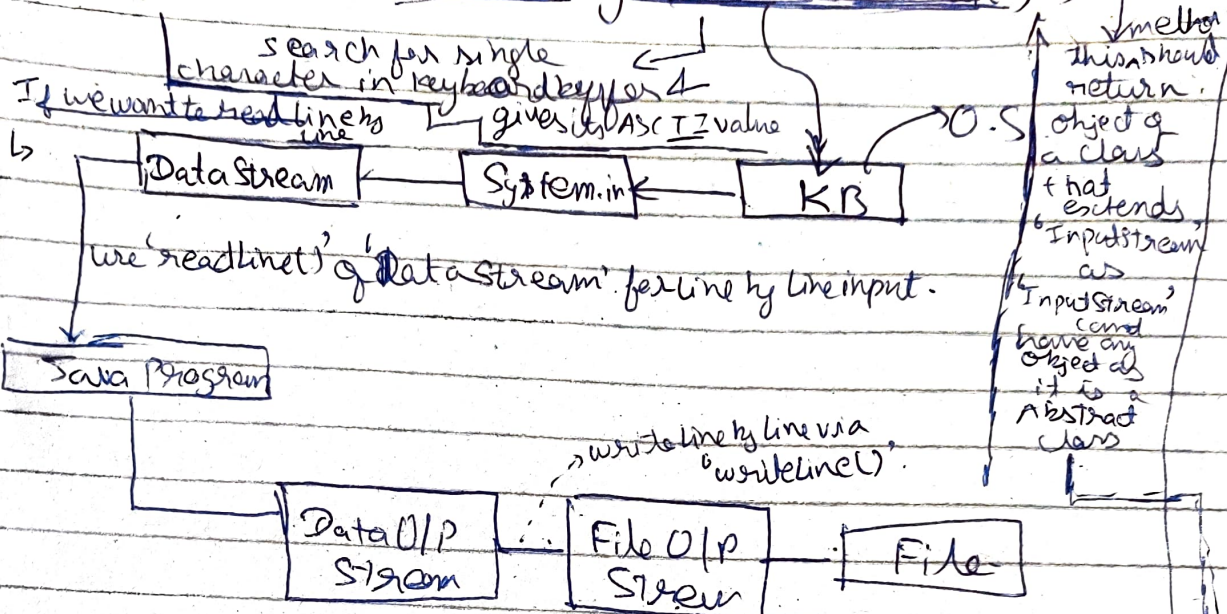 search for single
character in keyboard buffer &
gives its ASCII value
If we want to read line by
line
Data Stream
System.in
KB
O.S
use 'readline()' of 'Data Stream' for line by line input.
Java Program
write line by line via
'writeline()'.
Data O/P
Stream
File O/P
Stream
File
method
this should
return
object of
a class
that
extends
'InputStream'
as
'InputStream'
have any
object as
it is a
Abstract
class